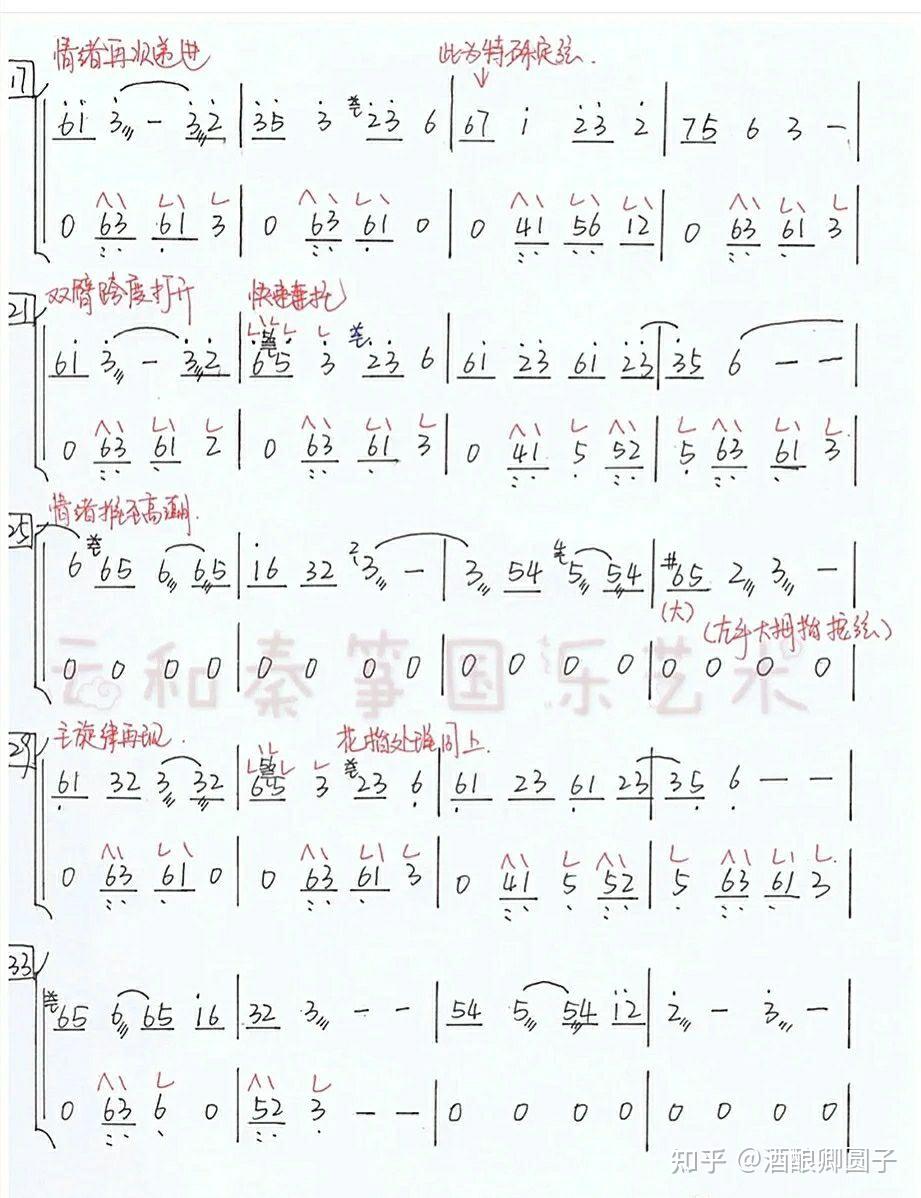 情绪再次递进 此为特殊定弦.
17
61 3 — 32 | 35 3 23 6 | 67 1 23 2 | 75 6 3 — |
0 63 61 3 | 0 63 61 0 | 0 41 56 12 | 0 63 61 3 |
双臂跨度打开 快速
21
61 3 — 32 | 65 3 23 6 | 61 23 61 23 | 35 6 — — |
0 63 61 2 | 0 63 61 3 | 0 41 5 52 | 5 63 61 3 |
情绪推至高潮.
25
6 65 6 65 | 16 32 3 — | 3 54 5 54 | #65 2 3 — |
(大) (左手大拇指按弦)
0 0 0 0 | 0 0 0 0 | 0 0 0 0 | 0 0 0 0
云和秦筝国乐艺术
主旋律再现. 花指处理同上.
29
61 32 3 32 | 65 3 23 6 | 61 23 61 23 | 35 6 — — |
0 63 61 0 | 0 63 61 3 | 0 41 5 52 | 5 63 61 3 |
33
65 6 65 16 | 32 3 — — | 54 5 54 12 | 2 — 3 — |
0 63 6 0 | 52 3 — — | 0 0 0 0 | 0 0 0 0 |
知乎 @酒酿卿圆子